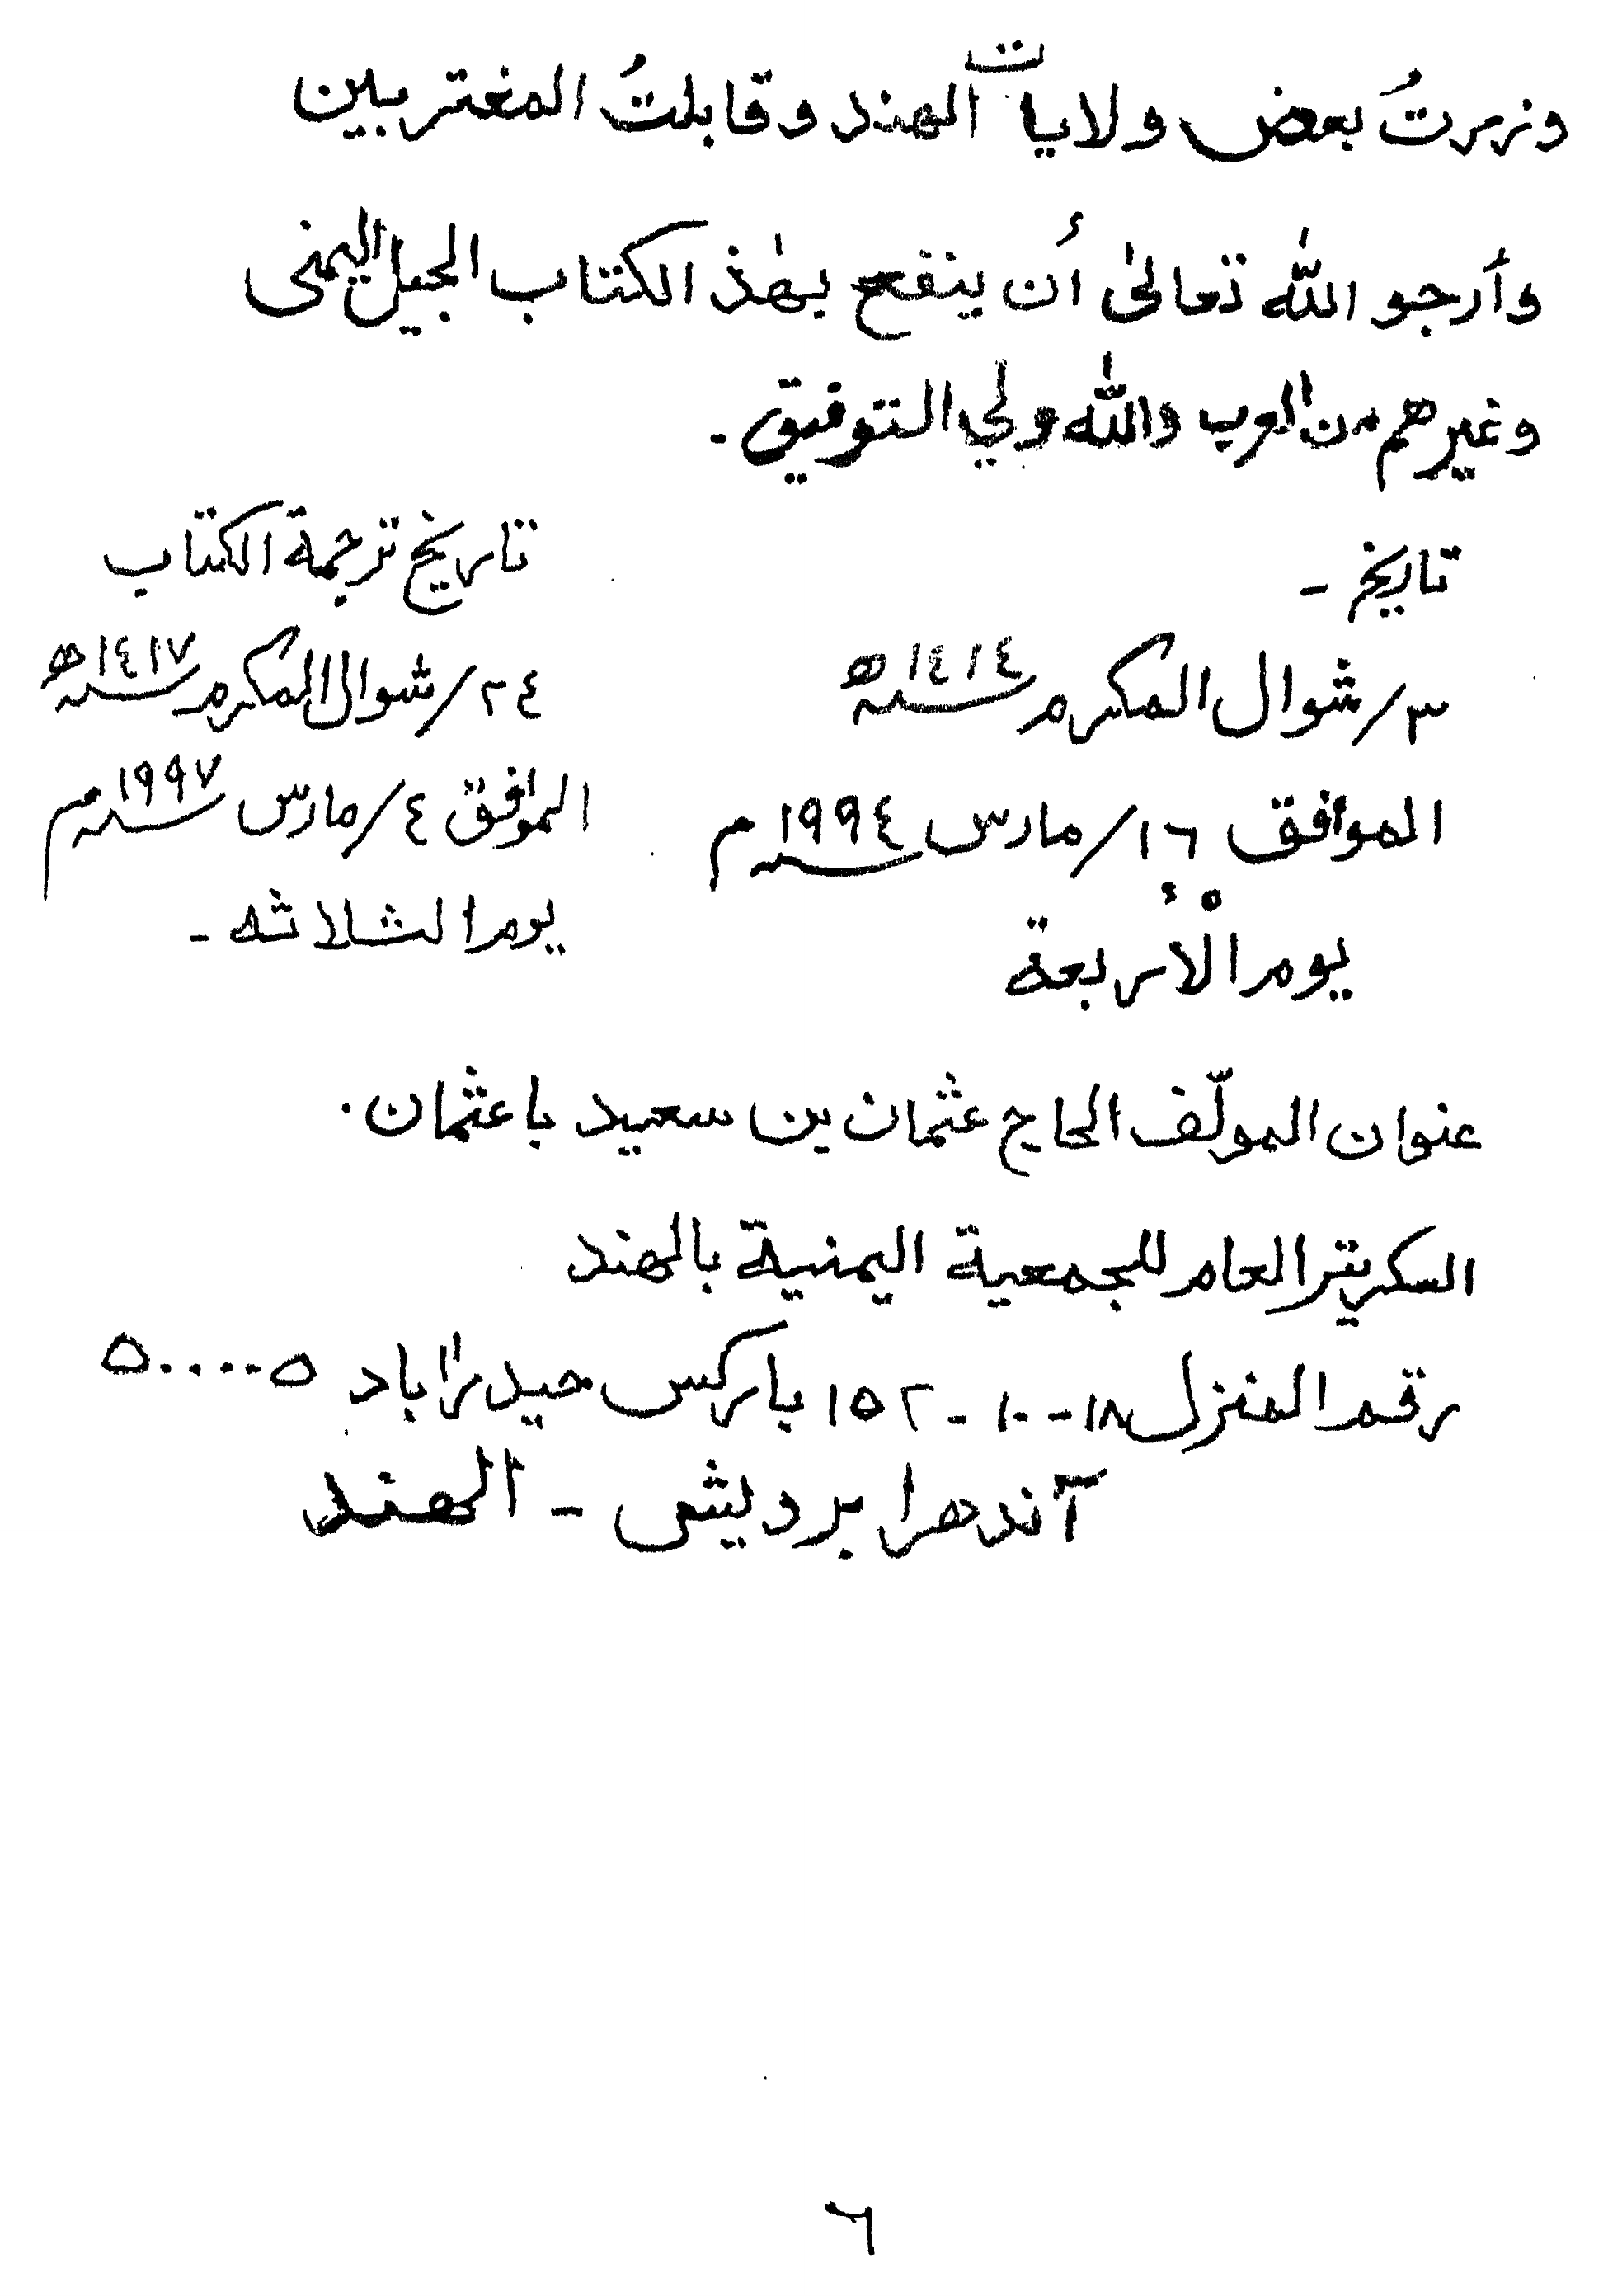 وزرتُ بعض ولايات الهند وقابلتُ المغتربين
وأرجو الله تعالىٰ أن ينفع بهٰذ الكتاب الجيل اليمنى
وغيرهم من العرب والله ولي التوفيق -
تاريخ -
٣/شوال المكرم سنه ١٤١٤ ھ
الموافق ١٦/مارس سنه ١٩٩٤ م
يوم الأربعة
تاريخ ترجمة الكتاب
٢٤/شوال المكرم سنه ١٤١٧ ھ
الموافق ٤/مارس سنه ١٩٩٧ م
يوم الثلاثه -
عنوان المولّف الحاج عثمان بن سعيد باعثمان .
السكريتر العام للجمعية اليمنية بالهند
رقم المنزل ١٨-١٠-١٥٢ باركس حيدراباد ٥٠٠٠٠٥
آندهرا برديش - الهند
٦